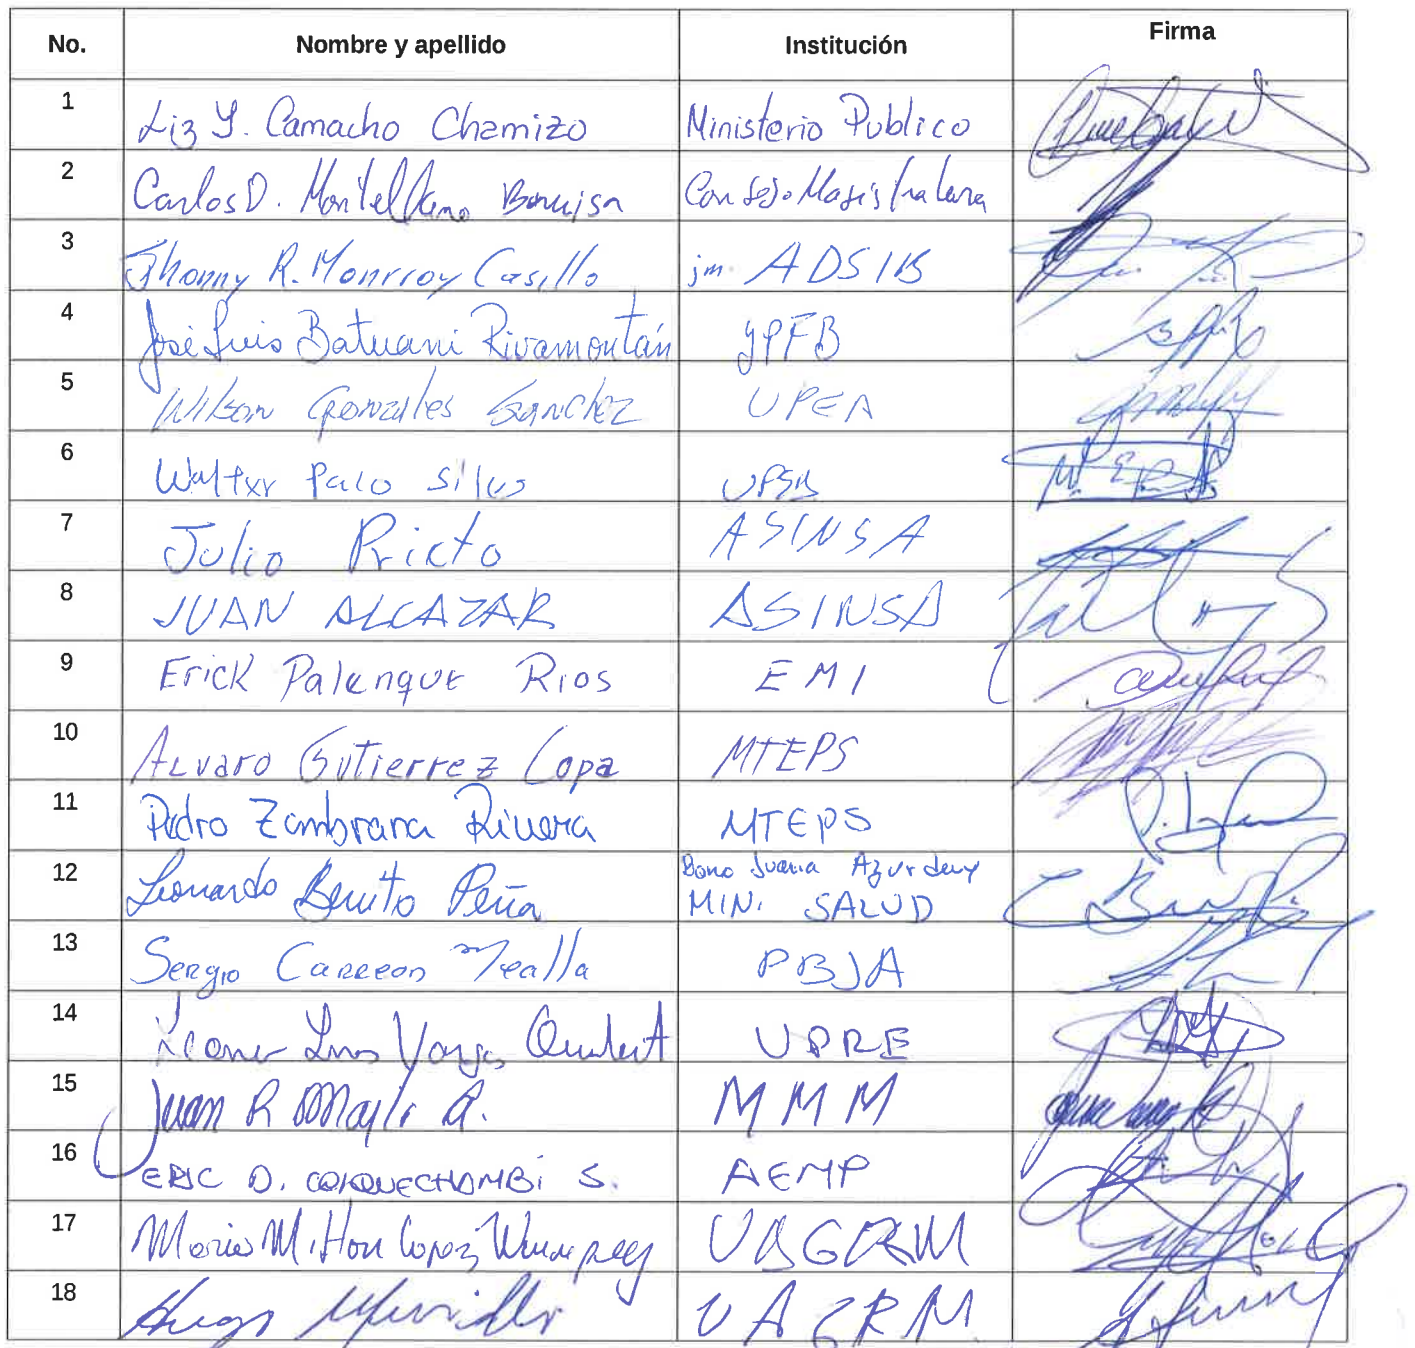 No. Nombre y apellido Institución Firma
1 Liz Y. Camacho Chamizo Ministerio Publico
2 Carlos D. Montellano Consejo Magistratura
3 Jhonny R. Monrroy Casillo jm. ADSIB
4 José Luis Batuani Rivamontán YPFB
5 Wilson Gonzales Sanchez UPEA
6 Walter Palo Silva UPSB
7 Julio Prieto ASINSA
8 JUAN ALCAZAR ASINSA
9 Erick Palenque Rios EMI
10 Alvaro Gutierrez Copa MTEPS
11 Pedro Zambrana Rivera MTEPS
12 Leonardo Benito Peña Bono Juana Azurduy
MIN. SALUD
13 Sergio Carreon Mealla PBJA
14 Luis Vargas UPRE
15 Juan R Mayta A. MMM
16 ERIC D. COIQUECHAMBi S. AEMP
17 Mario Milton Lopez UAGRM
18 Hugo Murillo UAGRM